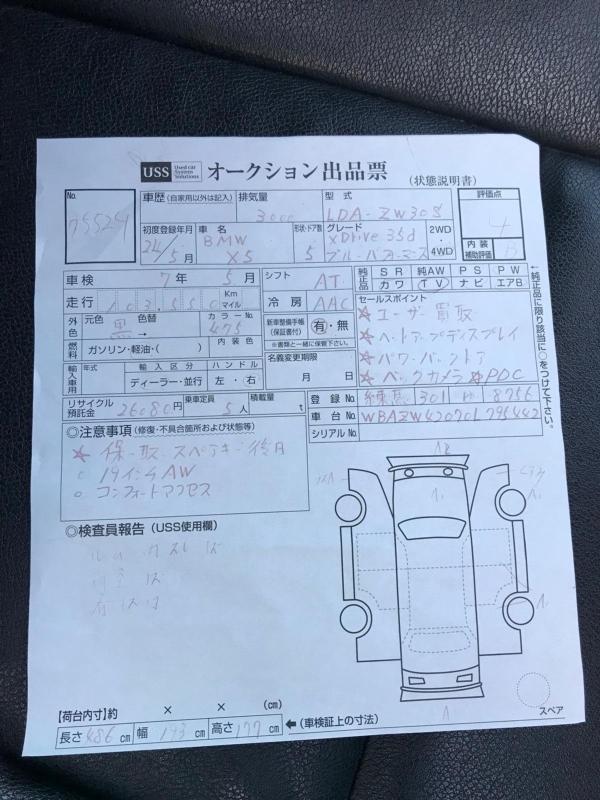 USS Used car System Solutions オークション出品票 (状態説明書)
No. 車歴 (自家用以外は記入) 排気量 3000 型式 LDA-ZW30S 評価点 4
初度登録年月 24年 5月 車名 BMW X5 形状・ドア数 5 グレード xDrive 35d ブルーパフォーマンス 2WD・4WD 内装補助評価 B
車検 7年 5月 シフト AT 純正品 SR 純AW PS PW カワ TV ナビ エアB
走行 Km マイル 冷房 AAC セールスポイント
外色 元色 黒 → 色替 カラーNo. 475 新車整備手帳 (保証書付) 有・無 ※書類と一緒に保管下さい。 ★ユーザー買取
燃料 ガソリン・軽油・( ) 内装色 ★ヘッドアップディスプレイ
輸入車用 年式 輸入区分 ディーラー・並行 ハンドル 左・右 名義変更期限 月 日 ★パワーバックドア
★バックカメラ ★PDC
リサイクル預託金 26080円 乗車定員 5人 積載量 t 登録No. 練馬 301 8756
車台No. WBAZW42070L796442
シリアルNo.
◎注意事項 (修復・不具合箇所および状態等)
★ 保・取・スペアキー 後日
○ 19インチAW
○ コンフォートアクセス
◎検査員報告 (USS使用欄)
A
スペア
【荷台内寸】約 × × (cm)
長さ 486 cm 幅 193 cm 高さ 177 cm ←(車検証上の寸法)
↑純正品に限り該当に○をつけて下さい。